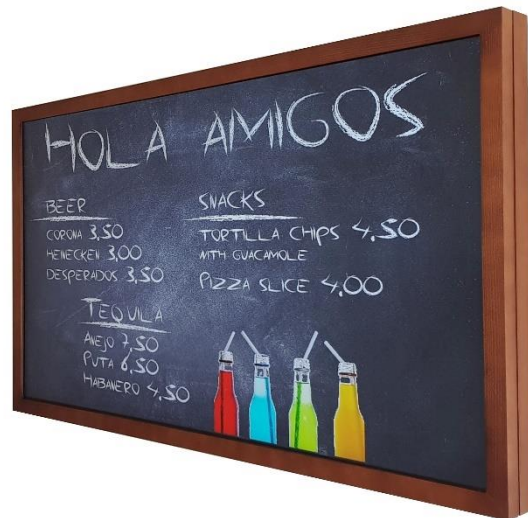 HOLA AMIGOS
BEER
CORONA 3,50
HEINECKEN 3,00
DESPERADOS 3,50
TEQUILA
AÑEJO 7,50
PUTA 6,50
HABANERO 4,50
SNACKS
TORTILLA CHIPS 4,50
WITH GUACAMOLE
PIZZA SLICE 4,00